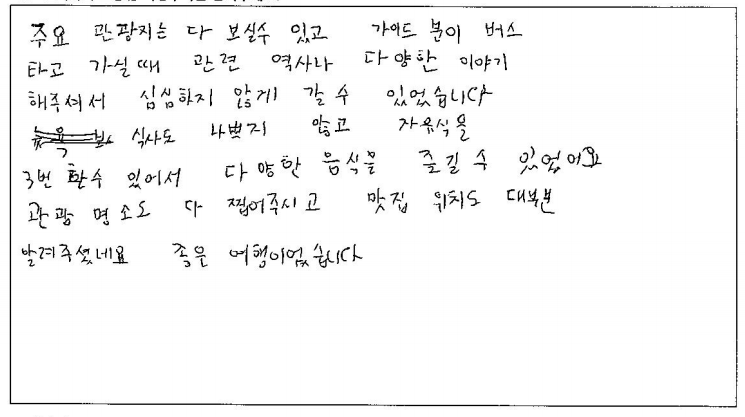 주요 관광지는 다 보실수 있고 가이드 분이 버스
타고 가실때 관련 역사나 다양한 이야기
해주셔서 심심하지 않게 갈 수 있었습니다
식사도 나쁘지 않고 자유식을
3번 할수 있어서 다양한 음식을 즐길 수 있었어요
관광 명소도 다 찝어주시고 맛집 위치도 대부분
알려주셨네요 좋은 여행이었습니다